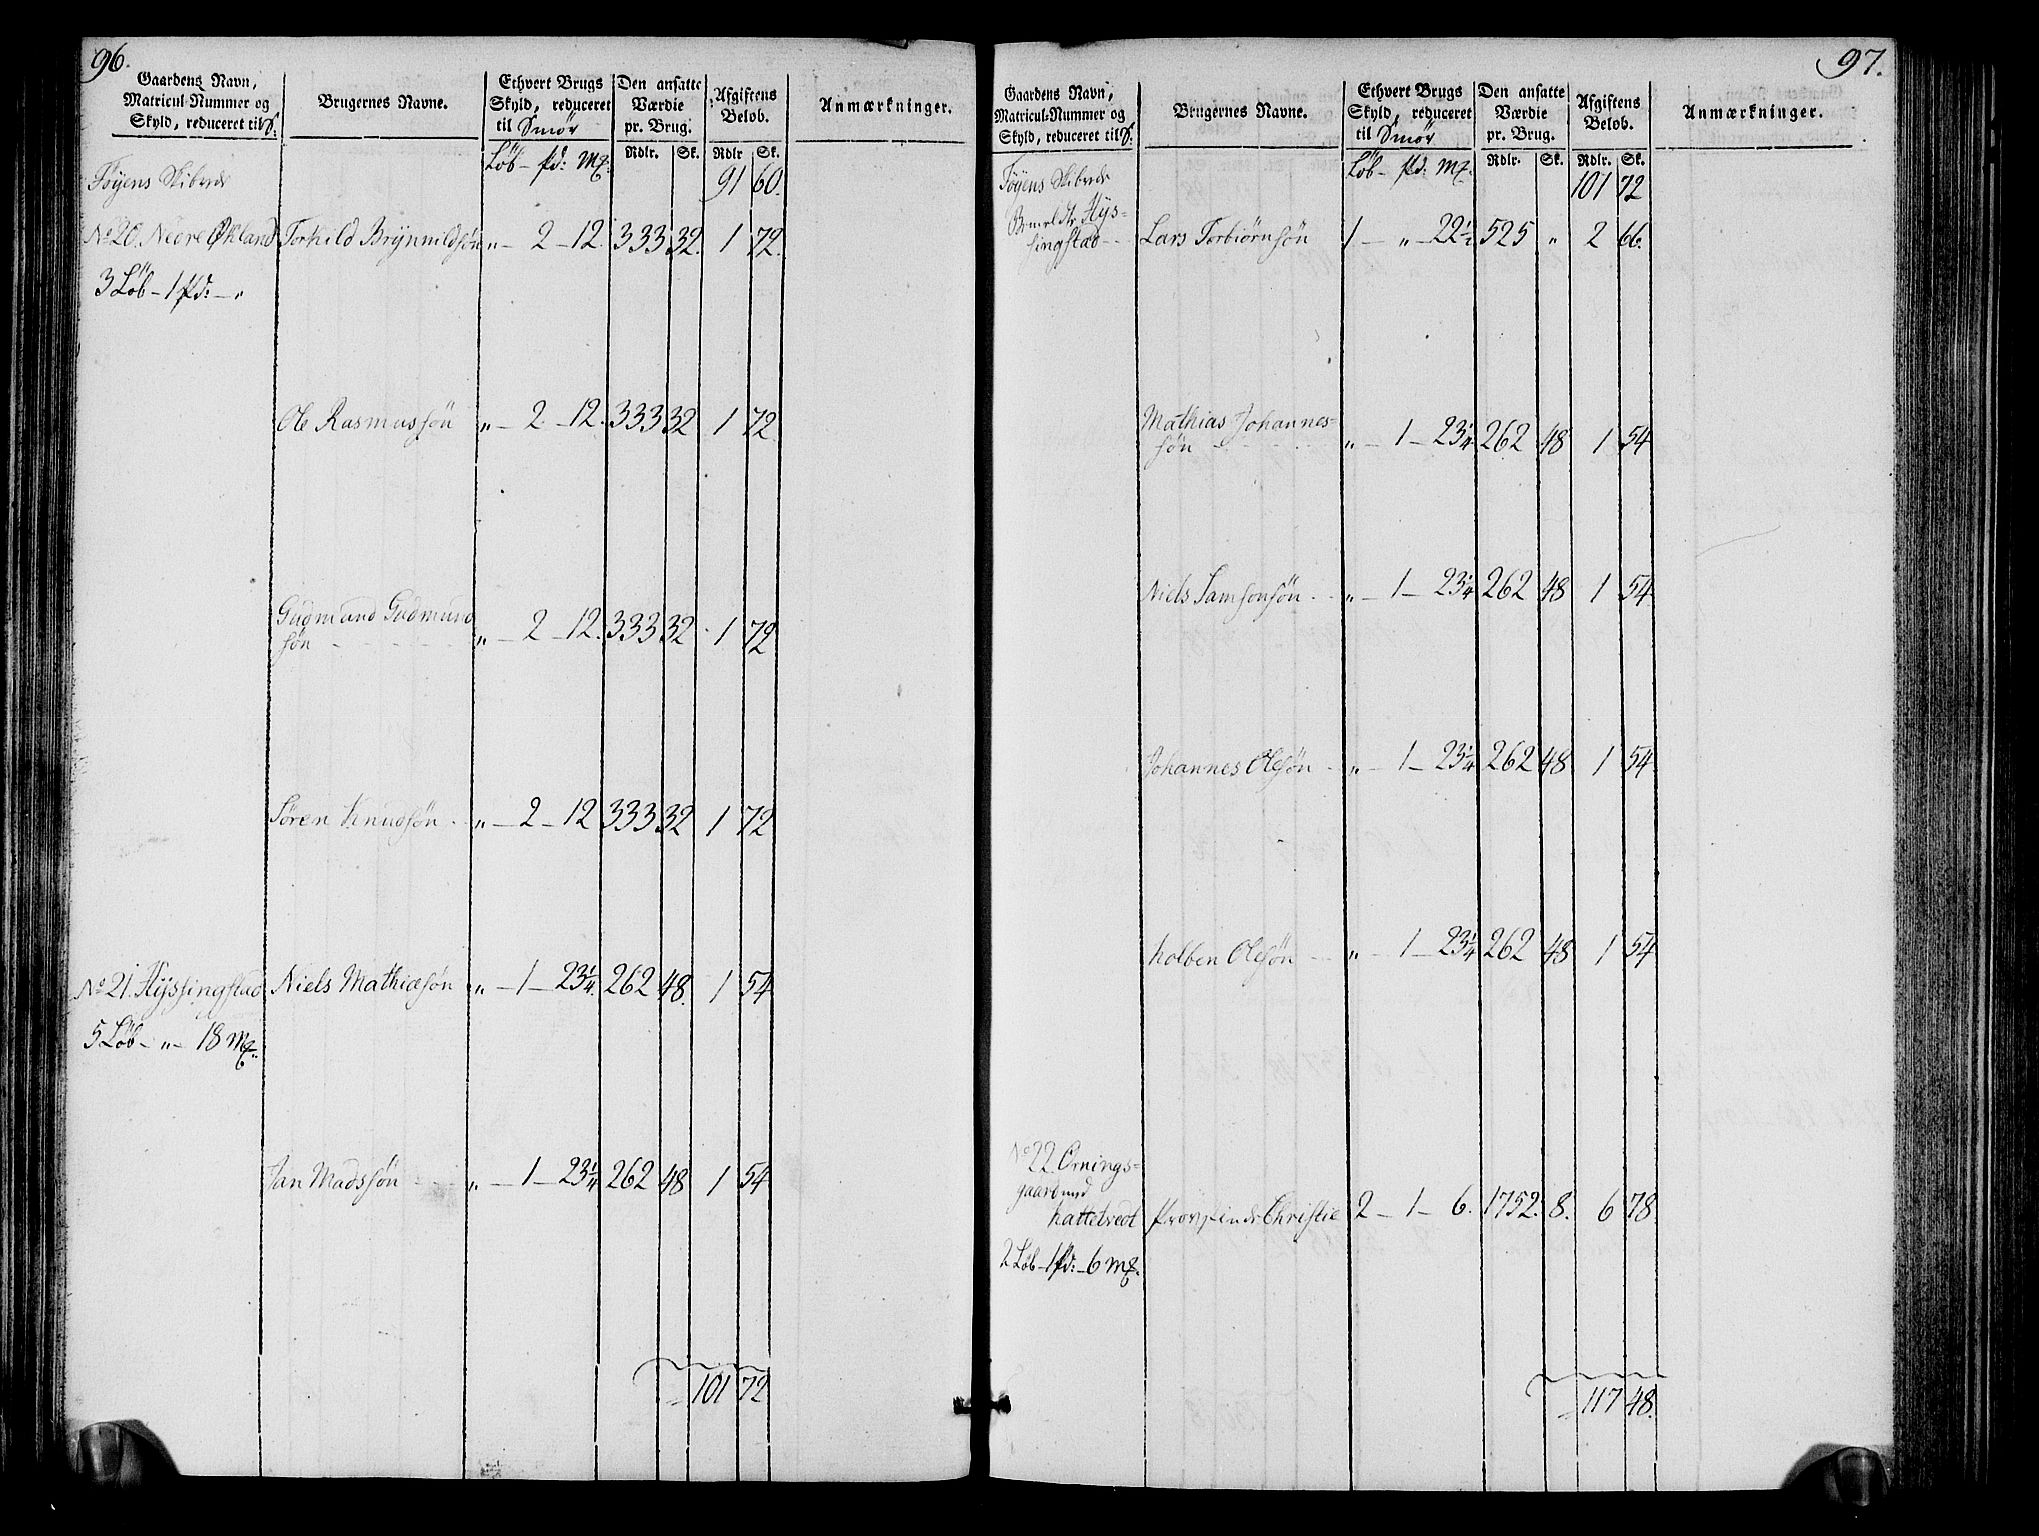 96.
Gaardens Navn,
Matricul-Nummer og
Skyld, reduceret til S:
Brugernes Navne.
Ethvert Brugs
Skyld, reduceret
til Smör
Den ansatte
Værdie
pr. Brug.
Afgiftens
Beløb.
Anmærkninger.
Löb - pd: Mk.
Rdlr. Sk. Rdlr Sk.
Föyens Skibrede 91 60.
No 20. Nedre Økland Torkild Brynnildsön „ - 2 - 12. 333 32. 1 72.
3 Löb - 1 pd: - „
Ole Rasmussön „ - 2 - 12. 333 32 1 72
Gudmund Gudmund
sön „ - 2 - 12. 333 32 1 72
Sören Knudsön „ - 2 - 12 333 32 1 72
No 21. Hyssingstad Niels Mathiesön „ - 1 - 23¼ 262 48. 1 54
5 Löb - „ - 18 Mk.
Jan Madssön „ - 1 - 23¼ 262 48 1 54
101 72
97.
Gaardens Navn,
Matricul-Nummer og
Skyld, reduceret til S:
Brugernes Navne.
Ethvert Brugs
Skyld, reduceret
til Smör
Den ansatte
Værdie
pr. Brug.
Afgiftens
Beløb.
Anmærkninger.
Löb - pd: Mk.
Rdlr. Sk. Rdlr. Sk.
Föyens Skibrede 101 72
Hys-
singstad Lars Torbiörnsön 1 - „ - 22½ 525 „ 2 66.
Mathias Johannes-
sön „ - 1 - 23¼ 262 48 1 54
Niels Samsonsön „ - 1 - 23¼ 262 48 1 54
Johannes Olesön „ - 1 - 23¼ 262 48 1 54
Kolben Olesön „ - 1 - 23¼ 262 48 1 54
No 22. Ornings-
gaard med
Hattelvedt Christie 2 - 1 - 6. 1752. 8. 6 78.
2 Löb - 1 pd: - 6 Mk.
117 48.